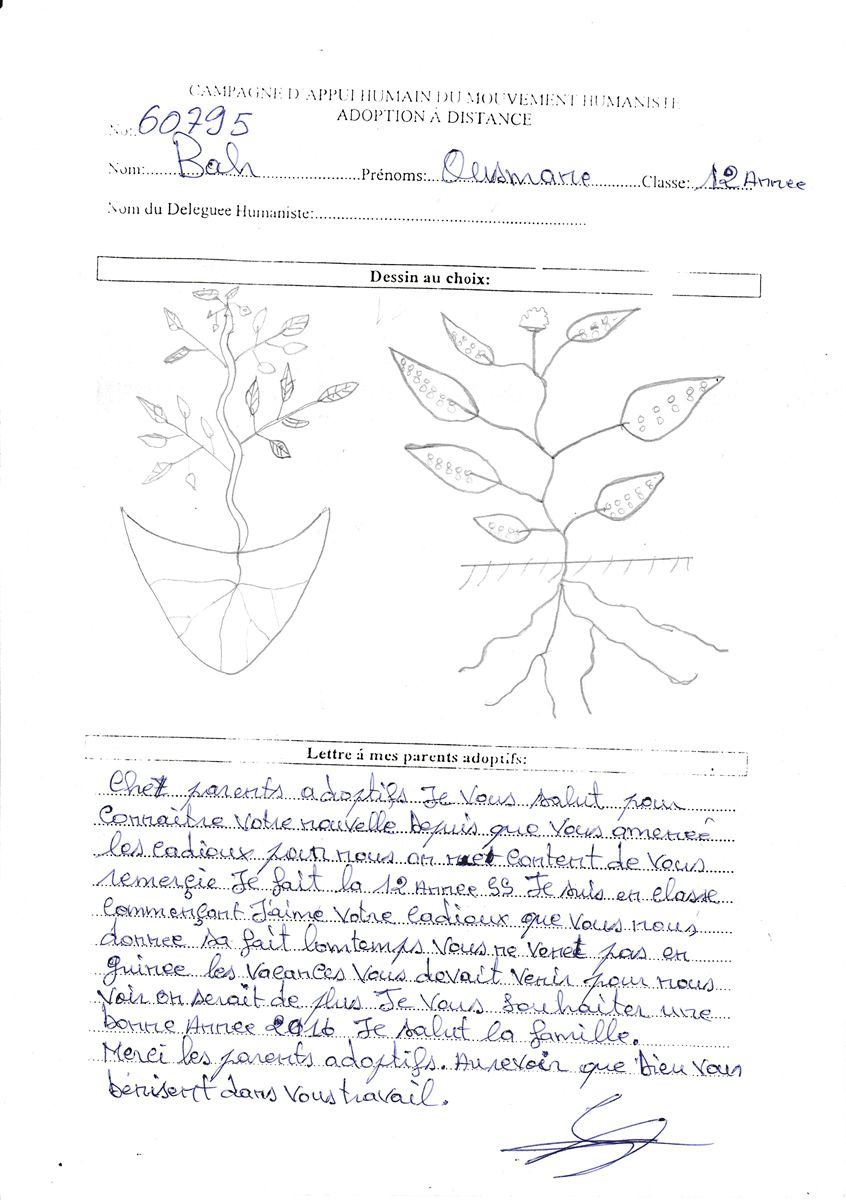 CAMPAGNE D'APPUI HUMAIN DU MOUVEMENT HUMANISTE
ADOPTION À DISTANCE
No: 60795
Nom: Bah Prénoms: Ousmane Classe: 12 Année
Nom du Deleguee Humaniste:
Dessin au choix:
Lettre á mes parents adoptifs:
Chet parents adoptifs Je vous salut pour
Connaître votre nouvelle depuis que vous ameneé
les cadioux pour nous on met content de vous
remerçie Je fait la 12 Année SS Je suis en classe
Commençant J'aime votre cadioux que vous nous
donnee sa fait lomtemps vous ne venet pas en
guinee les vacances vous devait venir pour nous
voir on serait de plus Je vous souhaiter une
bonne Année 2016 Je salut la famille.
Merci les parents adoptifs. Aurevoir que Dieu vous
bénisent dans vous travail.